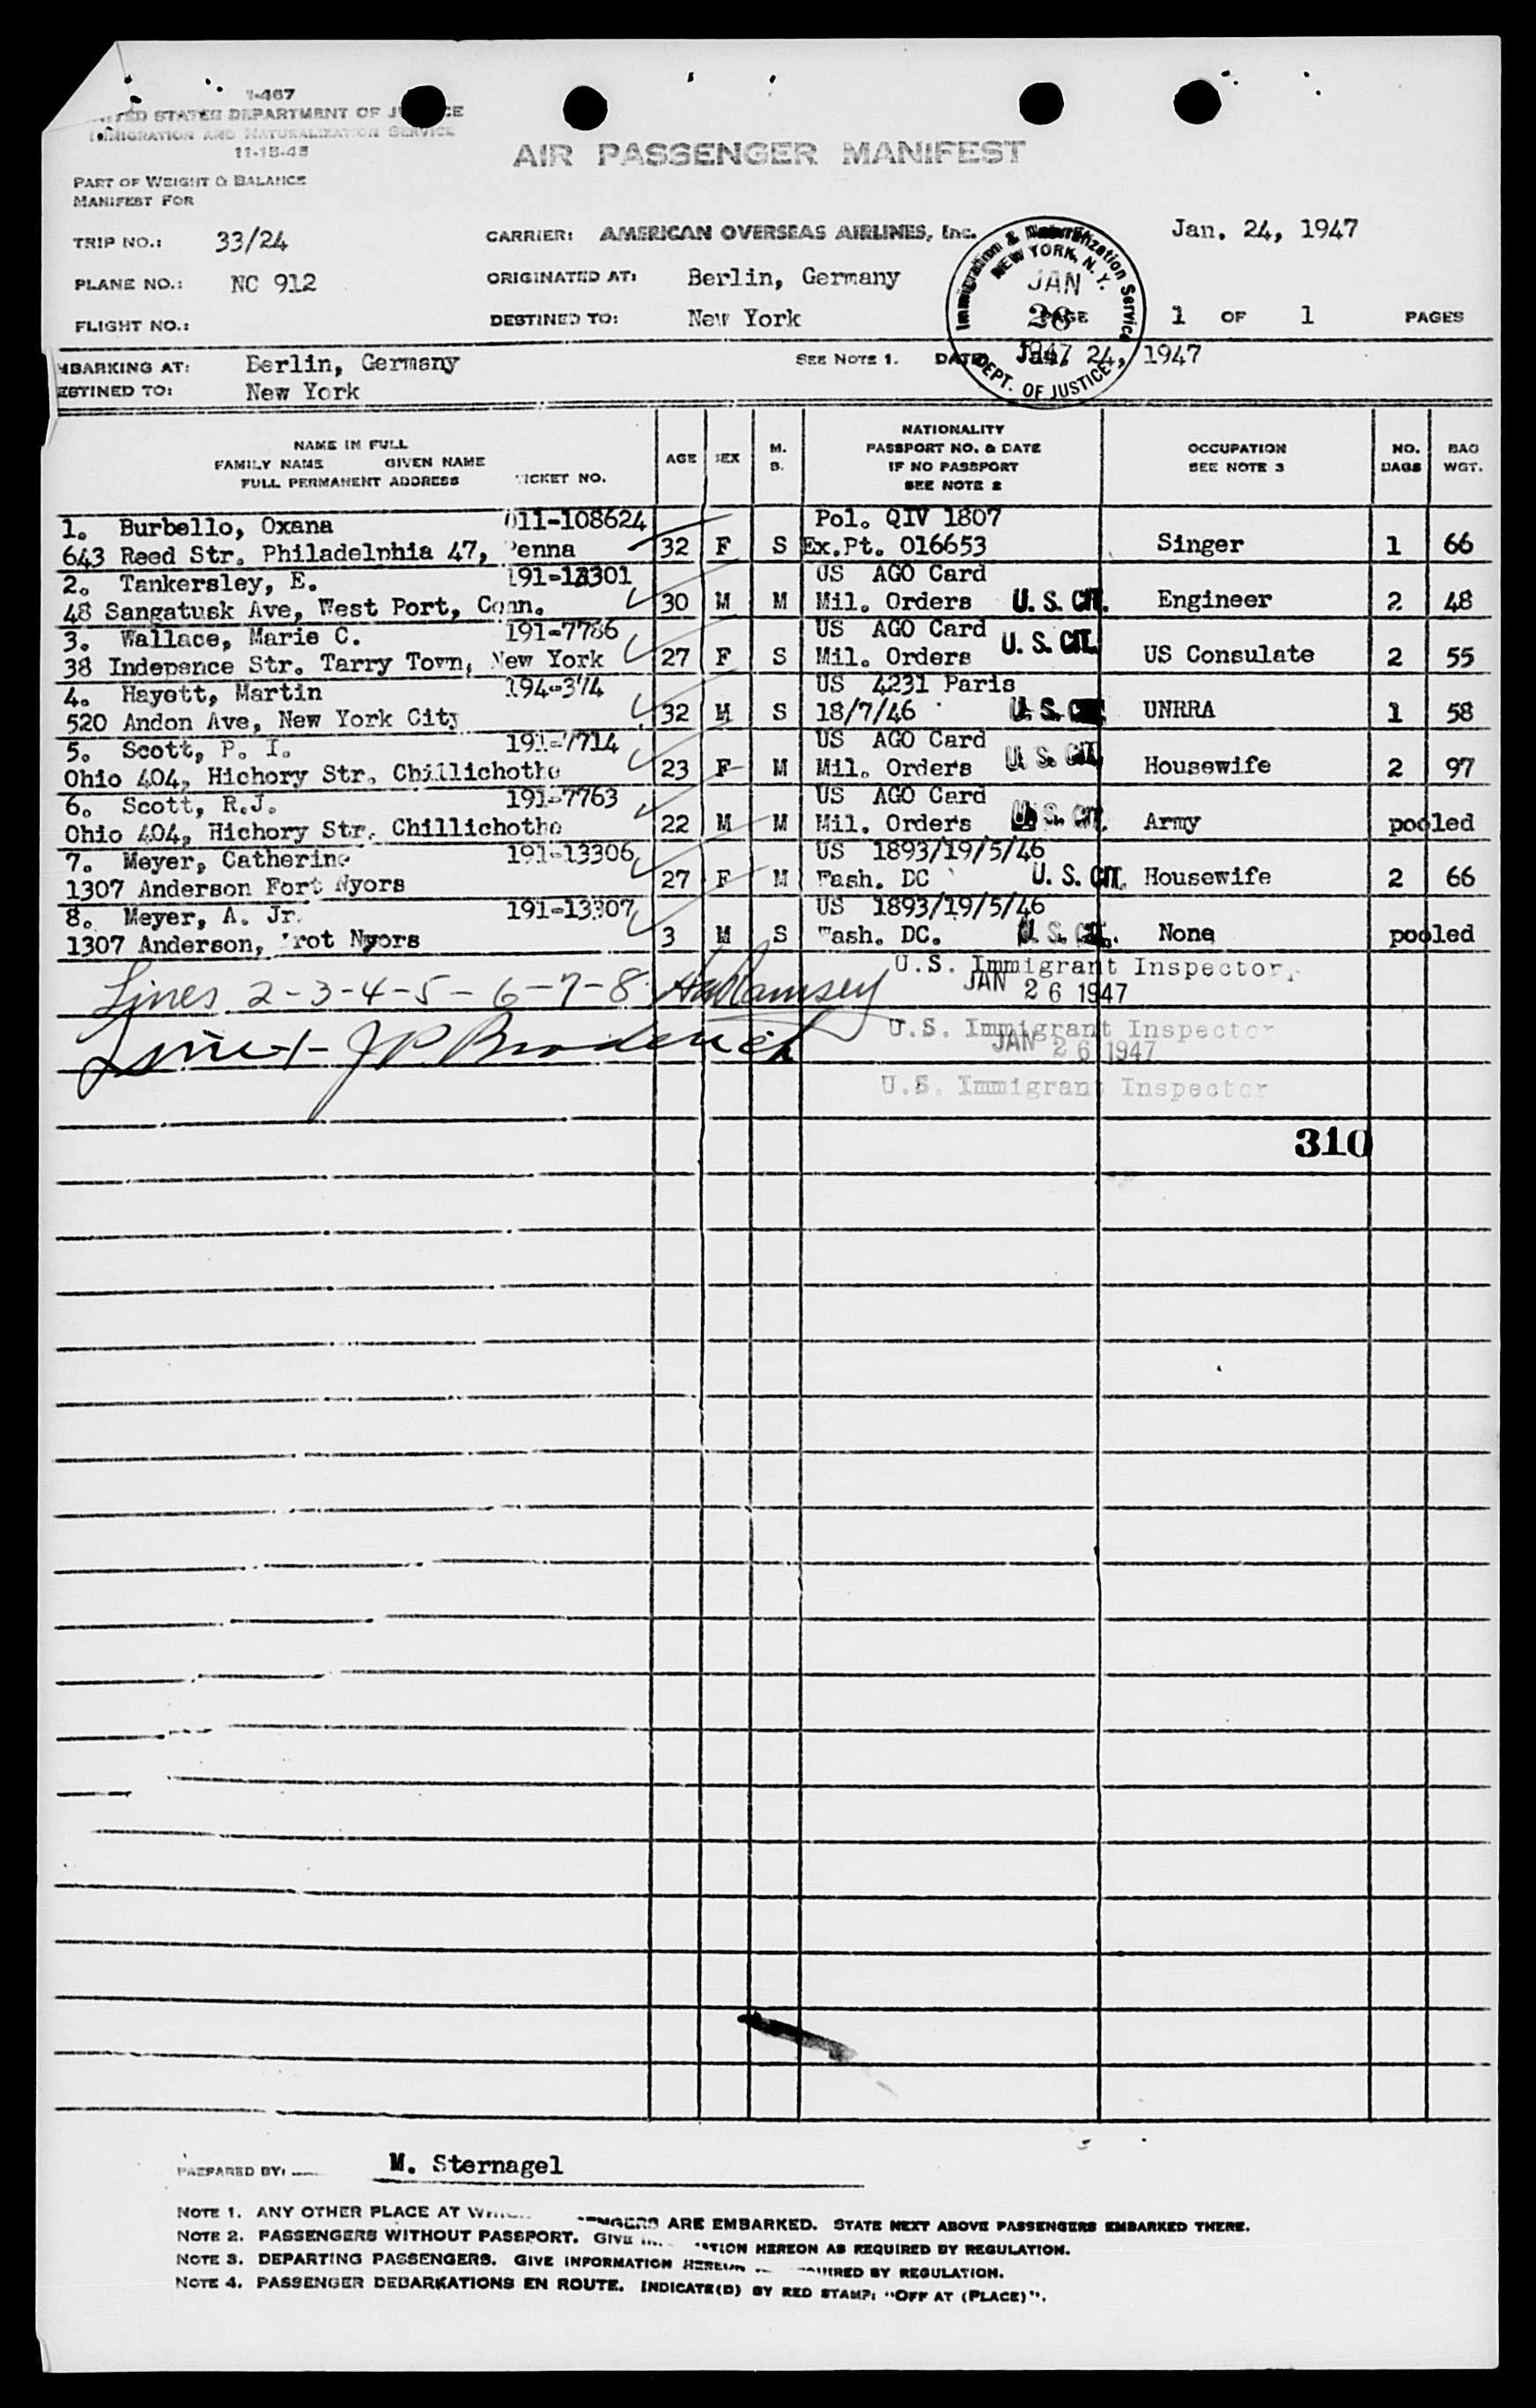 I-467
UNITED STATES DEPARTMENT OF JUSTICE
IMMIGRATION AND NATURALIZATION SERVICE
11-15-45
AIR PASSENGER MANIFEST
PART OF WEIGHT & BALANCE
MANIFEST FOR
TRIP NO.: 33/24 CARRIER: AMERICAN OVERSEAS AIRLINES, Inc. Jan. 24, 1947
PLANE NO.: NC 912 ORIGINATED AT: Berlin, Germany
FLIGHT NO.: DESTINED TO: New York PAGE 1 OF 1 PAGES
Immigration & Naturalization Service
NEW YORK, N. Y.
JAN
26
1947
DEPT. OF JUSTICE
EMBARKING AT: Berlin, Germany SEE NOTE 1. DATE Jan. 24, 1947
DESTINED TO: New York
NAME IN FULL
FAMILY NAME GIVEN NAME
FULL PERMANENT ADDRESS TICKET NO. AGE SEX M. S. NATIONALITY PASSPORT NO. & DATE IF NO PASSPORT SEE NOTE 2 OCCUPATION SEE NOTE 3 NO. BAGS BAG WGT.
1. Burbello, Oxana 011-108624 Pol. QIV 1807
643 Reed Str. Philadelphia 47, Penna 32 F S Ex.Pt. 016653 Singer 1 66
2. Tankersley, E. 191-13301 US AGO Card
48 Sangatusk Ave, West Port, Conn. 30 M M Mil. Orders U. S. CIT. Engineer 2 48
3. Wallace, Marie C. 191-7786 US AGO Card
38 Indepence Str. Tarry Town, New York 27 F S Mil. Orders U. S. CIT. US Consulate 2 55
4. Hayett, Martin 194-374 US 4231 Paris
520 Andon Ave, New York City 32 M S 18/7/46 U. S. CIT. UNRRA 1 58
5. Scott, P. I. 191-7714 US AGO Card
Ohio 404, Hichory Str. Chillichothe 23 F M Mil. Orders U. S. CIT. Housewife 2 97
6. Scott, R.J. 191-7763 US AGO Card
Ohio 404, Hichory Str. Chillichothe 22 M M Mil. Orders U. S. CIT. Army pooled
7. Meyer, Catherine 191-13306 US 1893/19/5/46
1307 Anderson Fort Nyors 27 F M Wash. DC U. S. CIT. Housewife 2 66
8. Meyer, A. Jr. 191-13307 US 1893/19/5/46
1307 Anderson, Frot Nyors 3 M S Wash. DC. U. S. CIT. None pooled
Lines 2-3-4-5-6-7-8 Ramsey U.S. Immigrant Inspector
JAN 26 1947
Line 1- J P Broderick U.S. Immigrant Inspector
JAN 26 1947
U.S. Immigrant Inspector
310
PREPARED BY: M. Sternagel
NOTE 1. ANY OTHER PLACE AT WHICH PASSENGERS ARE EMBARKED. STATE NEXT ABOVE PASSENGERS EMBARKED THERE.
NOTE 2. PASSENGERS WITHOUT PASSPORT. GIVE INFORMATION HEREON AS REQUIRED BY REGULATION.
NOTE 3. DEPARTING PASSENGERS. GIVE INFORMATION HEREON AS REQUIRED BY REGULATION.
NOTE 4. PASSENGER DEBARKATIONS EN ROUTE. INDICATE(D) BY RED STAMP: "OFF AT (PLACE)".